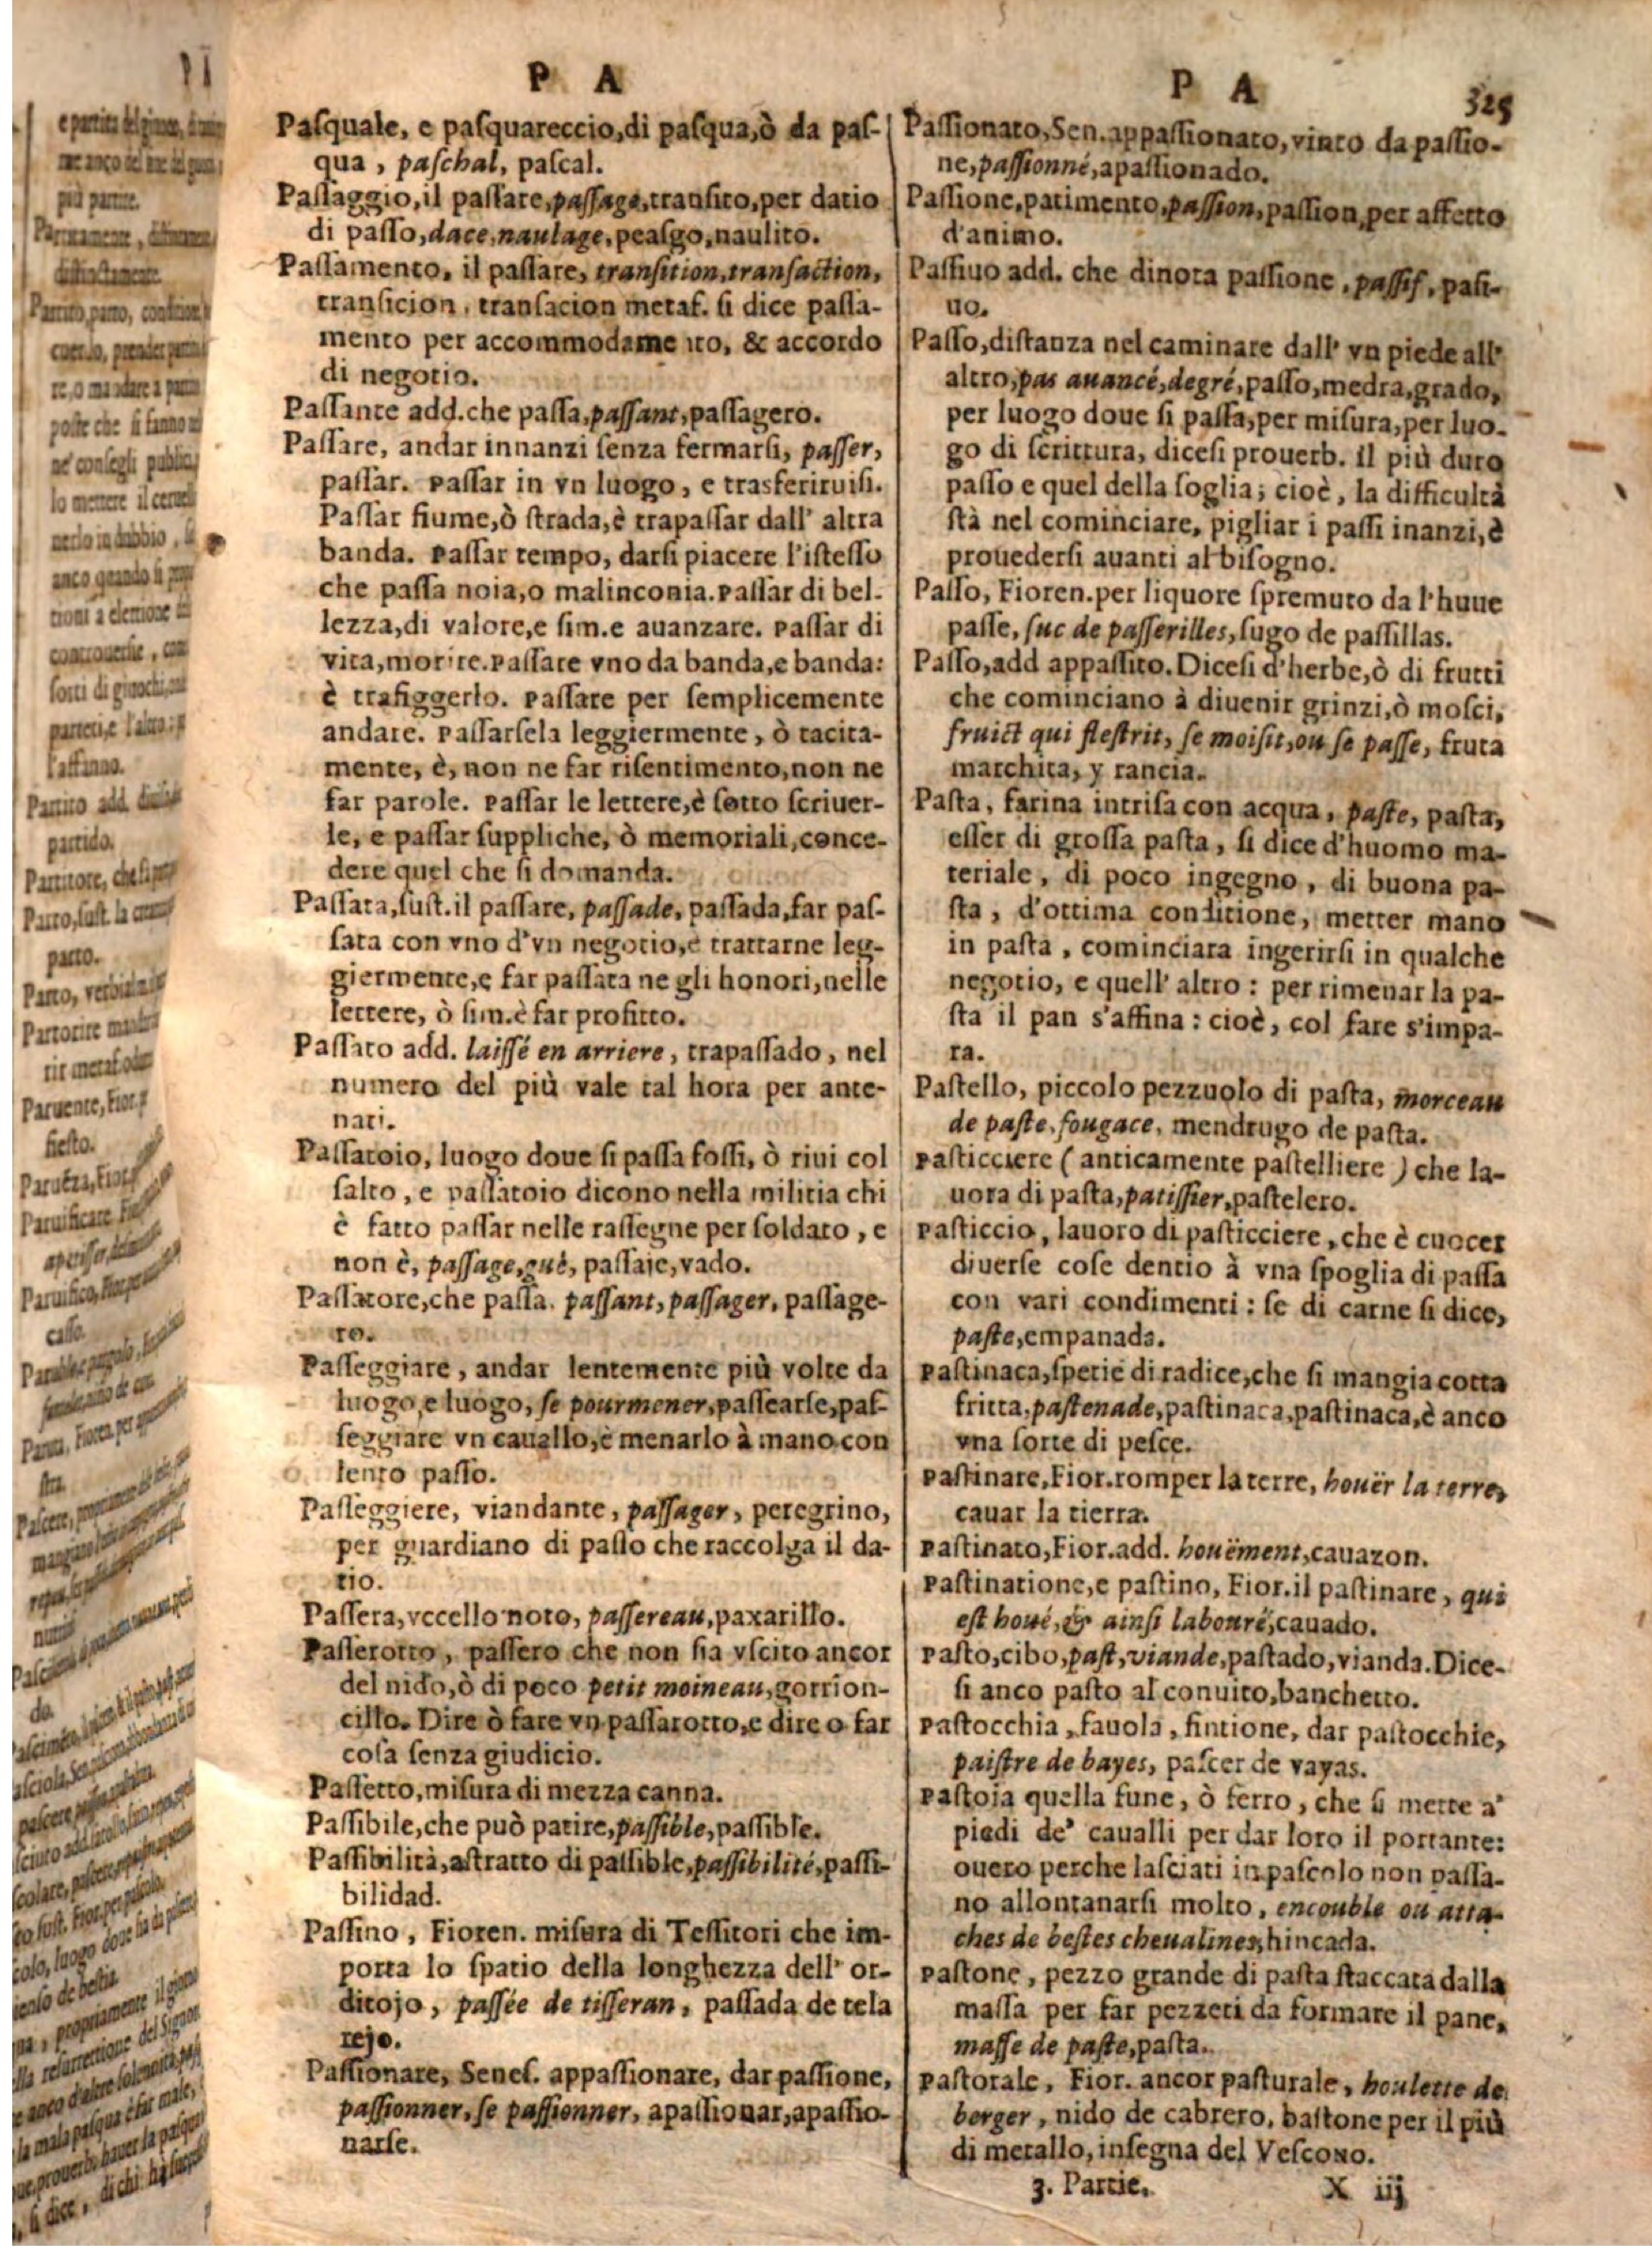 P A
Paſquale, e paſquareccio,di paſqua,ò da paſ-
qua , paſchal, paſcal.
Paſſaggio,il paſſare,paſſage,tranſito,per datio
di paſſo,dace,naulage,peaſgo,naulito.
Paſſamento, il paſſare, tranſition,tranſaction,
tranſicion, tranſacion metaf. ſi dice paſſa-
mento per accommodame nto, & accordo
di negotio.
Paſſante add.che paſſa,paſſant,paſſagero.
Paſſare, andar innanzi ſenza fermarſi, paſſer,
paſſar. Paſſar in vn luogo, e trasferiruiſi.
Paſſar fiume,ò ſtrada,è trapaſſar dall' altra
banda. Paſſar tempo, darſi piacere l'iſteſſo
che paſſa noia,o malinconia.Paſſar di bel-
lezza,di valore,e ſim.e auanzare. Paſſar di
vita,morire.Paſſare vno da banda,e banda:
è trafiggerlo. Paſſare per ſemplicemente
andare. Paſſarſela leggiermente , ò tacita-
mente, è, non ne far riſentimento,non ne
far parole. Paſſar le lettere,è ſotto ſcriuer-
le, e paſſar ſuppliche, ò memoriali,conce-
dere quel che ſi domanda.
Paſſata,ſuſt.il paſſare, paſſade, paſſada,far paſ-
ſata con vno d'vn negotio,è trattarne leg-
giermente,e far paſſata ne gli honori,nelle
lettere, ò ſim.è far profitto.
Paſſato add. laiſſé en arriere, trapaſſado, nel
numero del più vale tal hora per ante-
nati.
Paſſatoio, luogo doue ſi paſſa foſſi, ò riui col
ſalto, e paſſatoio dicono nella militia chi
è fatto paſſar nelle raſſegne per ſoldato, e
non è, paſſage,gué, paſſaje,vado.
Paſſatore,che paſſa. paſſant, paſſager, paſſage-
ro.
Paſſeggiare, andar lentemente più volte da
luogo,e luogo, ſe pourmener,paſſearſe,paſ-
ſeggiare vn cauallo,è menarlo à mano con
lento paſſo.
Paſſeggiere, viandante, paſſager, peregrino,
per guardiano di paſſo che raccolga il da-
tio.
Paſſera,vccello noto, paſſereau,paxarillo.
Paſſerotto, paſſero che non ſia vſcito ancor
del nido,ò di poco petit moineau,gorrion-
cillo. Dire ò fare vn paſſarotto,e dire o far
coſa ſenza giudicio.
Paſſetto,miſura di mezza canna.
Paſſibile,che può patire,paſſible,paſſible.
Paſſibilità,aſtratto di paſſible,paſſibilité,paſſi-
bilidad.
Paſſino, Fioren. miſura di Teſſitori che im-
porta lo ſpatio della longhezza dell' or-
ditojo, paſſée de tiſſeran, paſſada de tela
rejo.
Paſſionare, Seneſ. appaſſionare, dar paſſione,
paſſionner, ſe paſſionner, apaſſionar,apaſſio-
narſe.
P A 325
Paſſionato,Sen.appaſſionato,vinto da paſſio-
ne,paſſionné,apaſſionado.
Paſſione,patimento,paſſion,paſſion,per affetto
d'animo.
Paſſiuo add. che dinota paſſione, paſſif, paſi-
uo.
Paſſo,diſtanza nel caminare dall' vn piede all'
altro,pas auancé,degré,paſſo,medra,grado,
per luogo doue ſi paſſa,per miſura,per luo-
go di ſcrittura, diceſi prouerb. il più duro
paſſo e quel della ſoglia; cioè, la difficultà
ſtà nel cominciare, pigliar i paſſi inanzi,è
prouederſi auanti al biſogno.
Paſſo, Fioren.per liquore ſpremuto da l'huue
paſſe, ſuc de paſſerilles,ſugo de paſſillas.
Paſſo,add appaſſito.Diceſi d'herbe,ò di frutti
che cominciano à diuenir grinzi,ò moſci,
fruict qui fleſtrit, ſe moiſit,ou ſe paſſe, fruta
marchita, y rancia.
Paſta, farina intriſa con acqua, paſte, paſta,
eſſer di groſſa paſta, ſi dice d'huomo ma-
teriale, di poco ingegno, di buona pa-
ſta, d'ottima conditione, metter mano
in paſta, cominciara ingerirſi in qualche
negotio, e quell' altro : per rimenar la pa-
ſta il pan s'affina : cioè, col fare s'impa-
ra.
Paſtello, piccolo pezzuolo di paſta, morceau
de paſte, fougace, mendrugo de paſta.
Paſticciere ( anticamente paſtelliere ) che la-
uora di paſta,patiſſier,paſtelero.
Paſticcio, lauoro di paſticciere, che è cuocer
diuerſe coſe dentro à vna ſpoglia di paſſa
con vari condimenti : ſe di carne ſi dice,
paſte,empanada.
Paſtinaca,ſpetie di radice,che ſi mangia cotta
fritta,paſtenade,paſtinaca,paſtinaca,è anco
vna ſorte di peſce.
Paſtinare,Fior.romper la terre, houër la terre,
cauar la tierra.
Paſtinato,Fior.add. houëment,cauazon.
Paſtinatione,e paſtino, Fior.il paſtinare, qui
eſt houé,& ainſi labouré,cauado.
Paſto,cibo,paſt,viande,paſtado,vianda.Dice-
ſi anco paſto al conuito,banchetto.
Paſtocchia, fauola, fintione, dar paſtocchie,
paiſtre de bayes, paſcer de vayas.
Paſtoia quella fune, ò ferro, che ſi mette a'
piedi de' caualli per dar loro il portante:
ouero perche laſciati in paſcolo non paſſa-
no allontanarſi molto, encouble ou atta-
ches de beſtes cheualines,hincada.
Paſtone, pezzo grande di paſta ſtaccata dalla
maſſa per far pezzeti da formare il pane,
maſſe de paſte,paſta.
Paſtorale, Fior. ancor paſturale, houlette de
berger, nido de cabrero, baſtone per il più
di metallo, inſegna del Veſcouo.
3. Partie. X iij